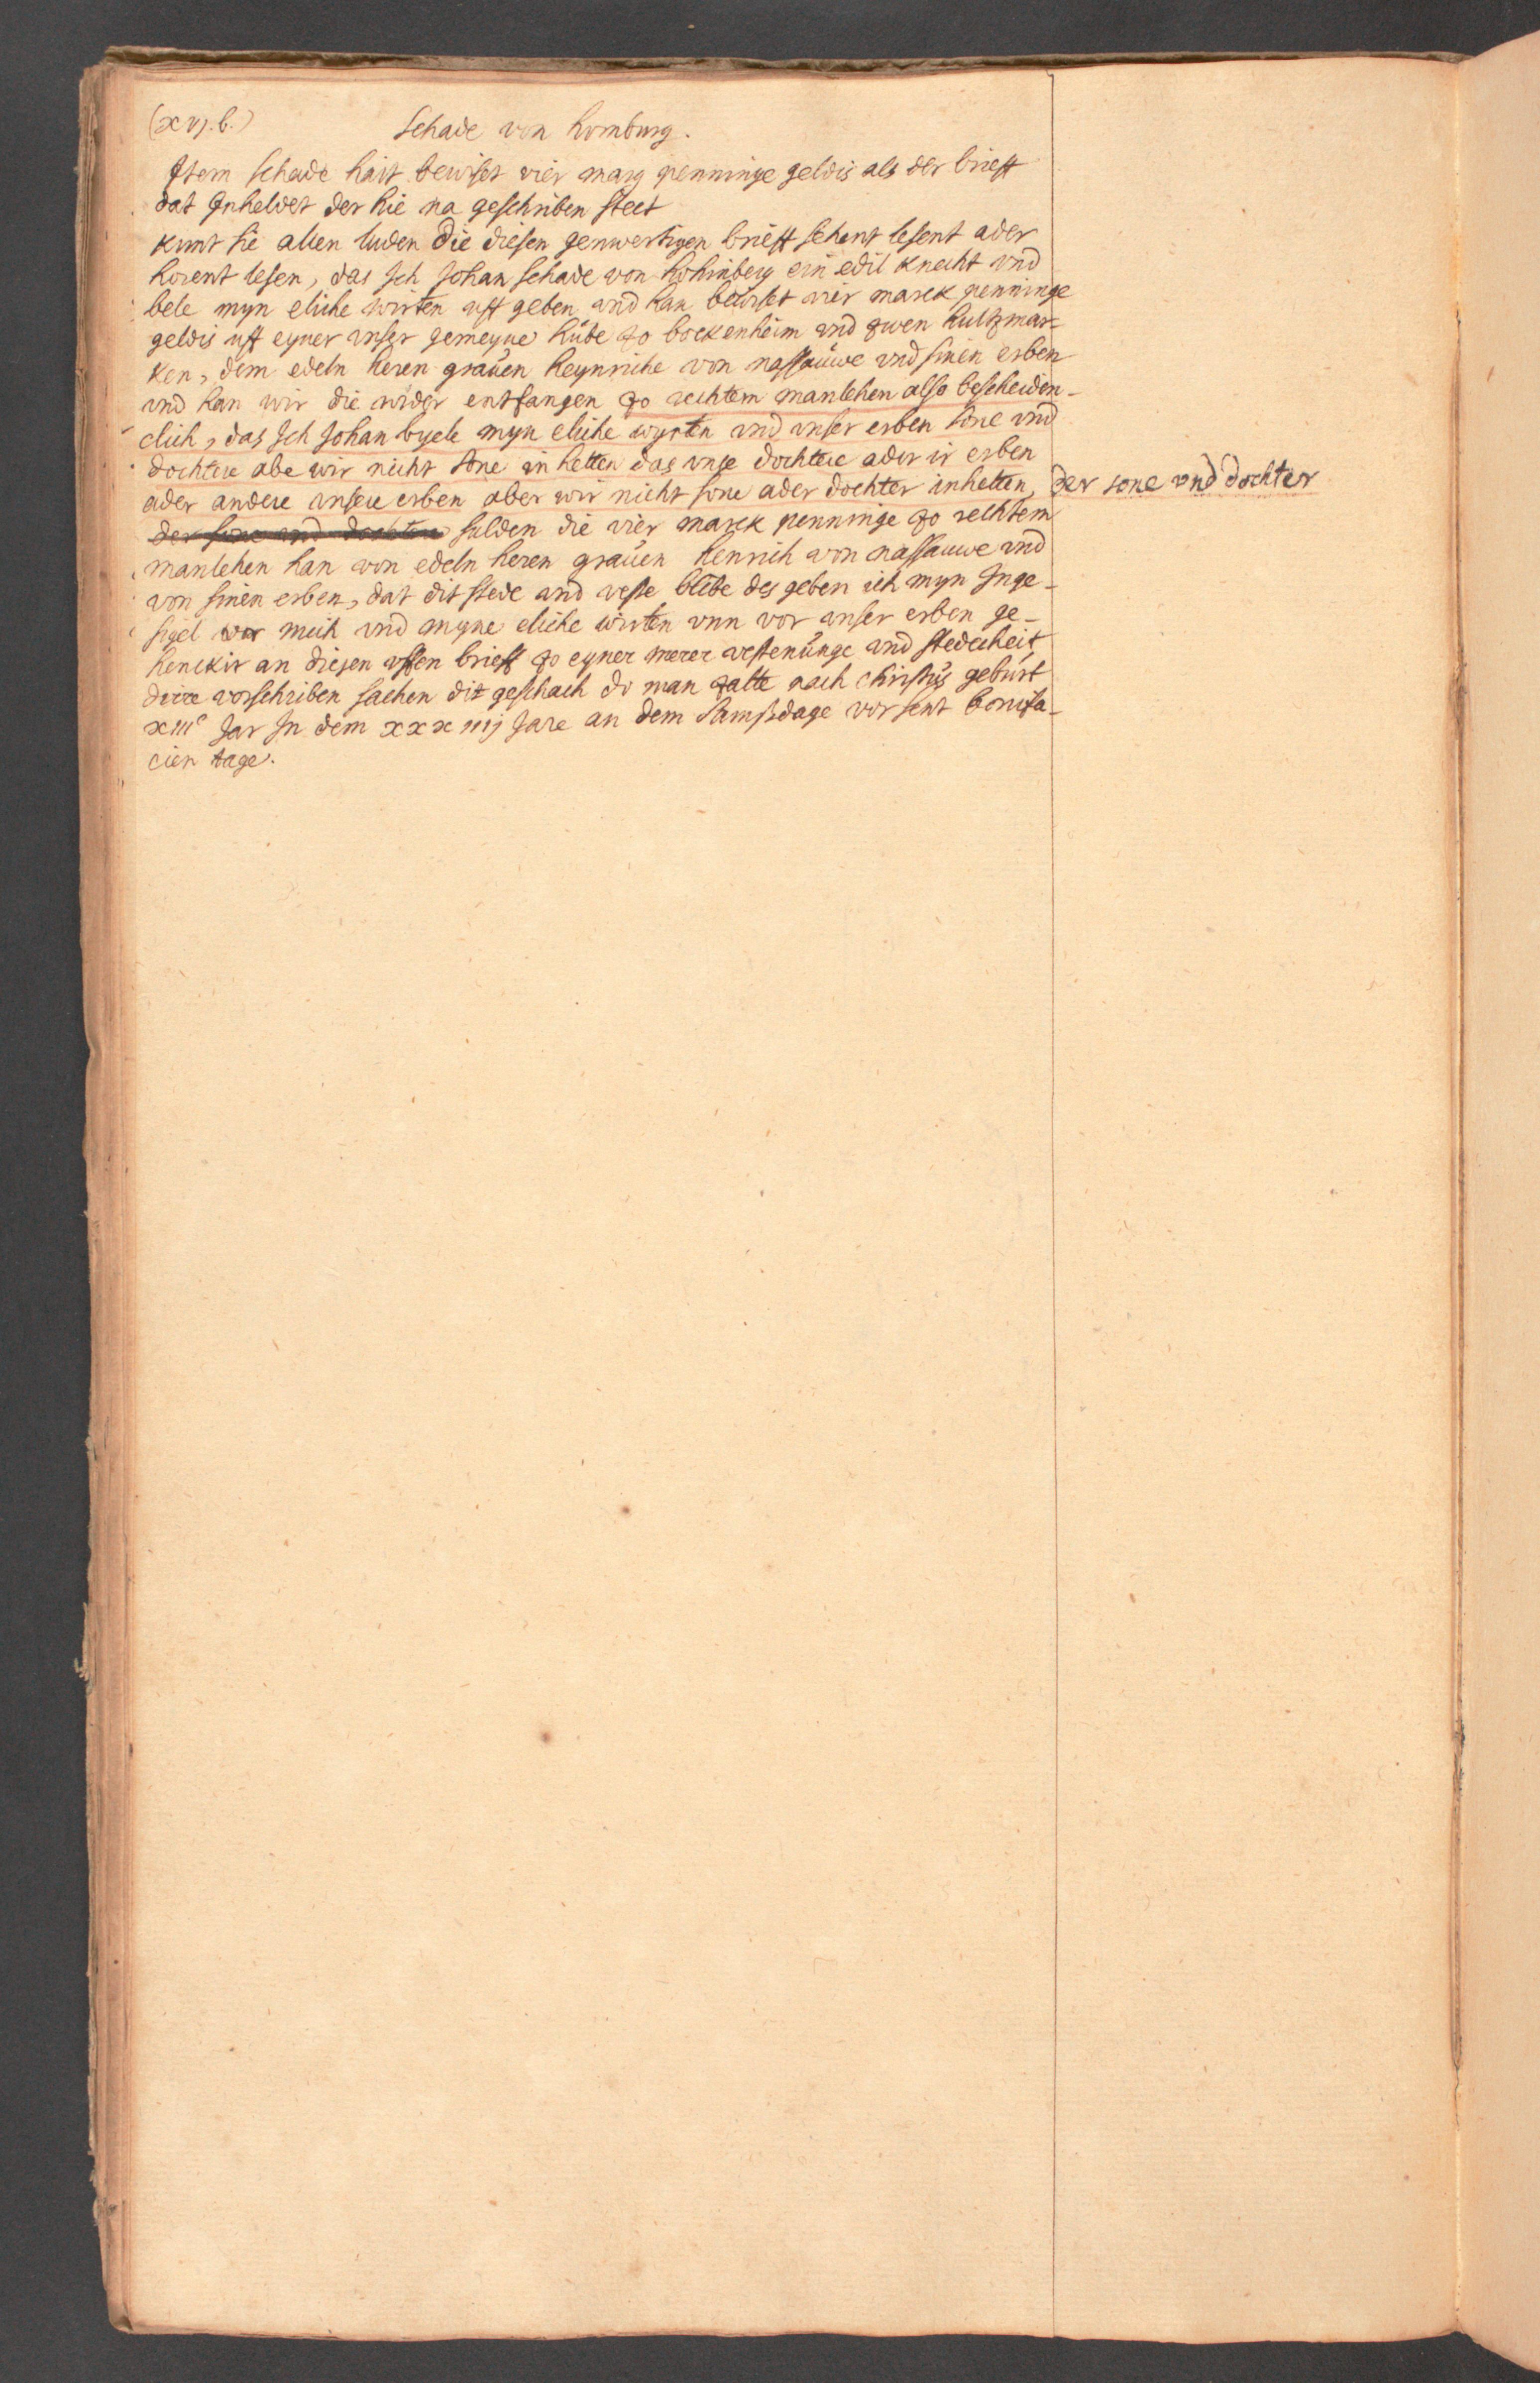 (xvj. b.) Schade von Homburg.
Item Schade hait bewiset vier marg penninge geldis als der brieff
dat Inheldet der hie na geschriben steet
kunt sie allen luden die diesen genwertigen brieff sehent lesent ader
horent lesen, das Ich Johan Schade von Hohinberg ein edil knecht vnd
bele myn eliche wirten uff geben vnd han bewiset vier marck penninge
geldis uff eyner vnser gemeyne hube zo bockenheim vnd zwen hultzmar-
ken, dem edeln heren grauen heynriche von nassauwe vnd sinen erben
vnd han wir die wider entfangen zo rechtem manlehen also bescheiden-
clich, das Ich Johan byele myn eliche wyrten vnd vnser erben sone vnd
dochtere abe wir nicht sone in hetten das vnse dochtere ader ir erben
ader andere vnsere erben aber wir nicht sone ader dochter inhetten, der sone vnd dochter
der sone vnd dochtere sulden die vier marck penninge zo rechtem
manlehen han von edeln heren grauen henrich von nassauwe vnd
von sinen erben, dat dit stede vnd veste blibe des geben ich myn Inge-
sigel vor mich vnd myne eliche wirten vnn vor vnser erben ge-
henckit an diesen uffen brieff zo eyner merer vestenunge vnd stedecheit
dirre vorschriben sachen dit geschach do man zalte nach christus geburt
xiijc Jar In dem xxx iiij Jare an dem Samßdage vor sent bonifa-
cien tage.